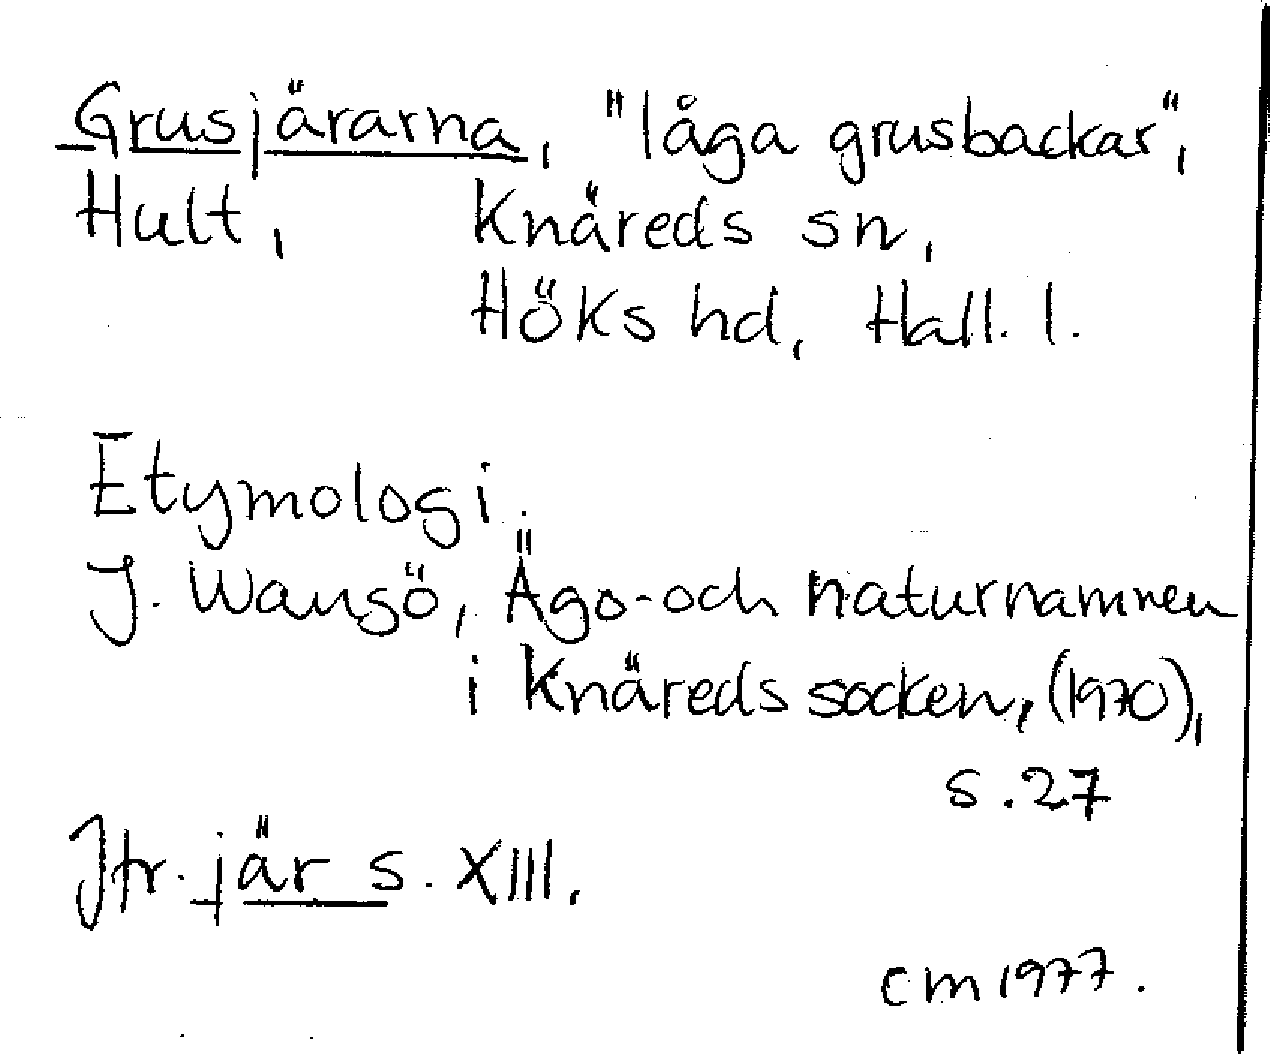 Grusjärarna, "låga grusbackar",
Hult, Knäreds sn,
Höks hd, Hall. l.
Etymologi.
J. Wangö, Ägo- och naturnamnen
i Knäreds socken, (1970),
s. 27
Jfr. jär s. XIII.
cm 1977.